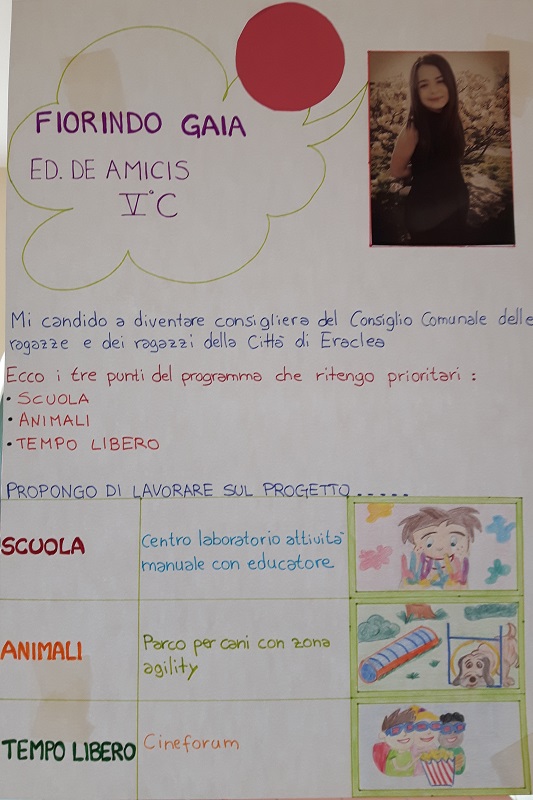 FIORINDO GAIA
ED. DE AMICIS
V°C
Mi candido a diventare consigliera del Consiglio Comunale delle
ragazze e dei ragazzi della Città di Eraclea
Ecco i tre punti del programma che ritengo prioritari :
• SCUOLA
• ANIMALI
• TEMPO LIBERO
PROPONGO DI LAVORARE SUL PROGETTO.....
SCUOLA
Centro laboratorio attività
manuale con educatore
ANIMALI
Parco per cani con zona
agility
TEMPO LIBERO
Cineforum